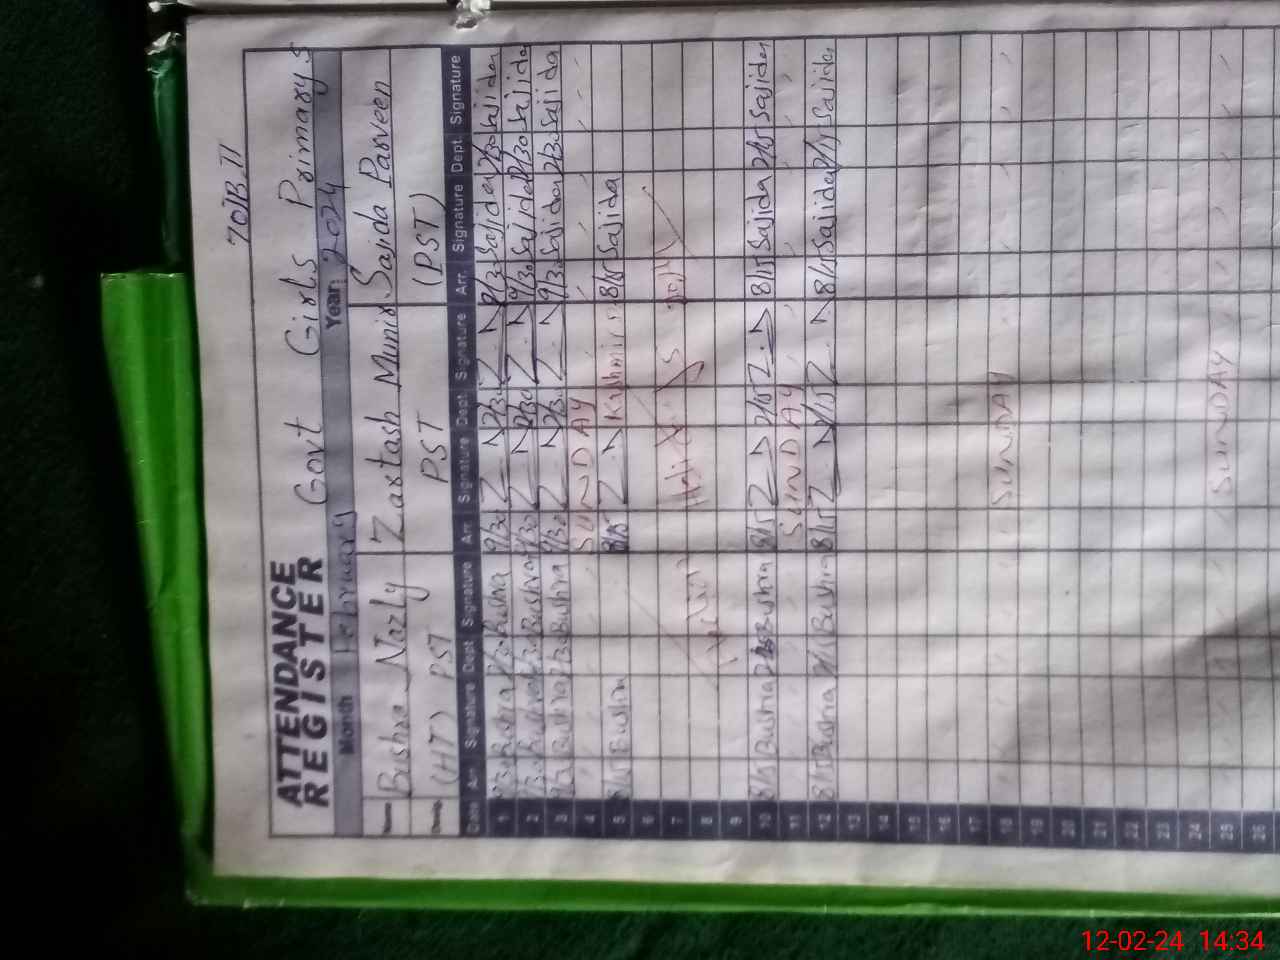 70/B.TI
ATTENDANCE
REGISTER
Govt Girls Primary S
Month February Year: 2024
Name Bushra Nazly Zartash Munir Sajida Parveen
Desig. (HT) PST PST (PST)
Date Arr. Signature Dept Signature Arr. Signature Dept Signature Arr. Signature Dept. Signature
1 9/30 Bushra 2/30 Bushra 9/30 2/30 9/30 Sajida 2/30 Sajida
2 9/30 Bushra 2/30 Bushra 9/30 2/30 9/30 Sajida 2/30 Sajida
3 9/30 Bushra 2/30 Bushra 9/30 2/30 9/30 Sajida 2/30 Sajida
4 SUNDAY
5 8/15 Bushra 8/15 Kashmir 8/15 Sajida
6
7 Holidays
8
9
10 8/15 Bushra 2/15 Bushra 8/15 2/15 8/15 Sajida 2/15 Sajida
11 SUNDAY
12 8/15 Bushra 2/15 Bushra 8/15 2/15 8/15 Sajida 2/15 Sajida
13
14
15
16
17
18 SUNDAY
19
20
21
22
23
24
25 SUNDAY
26
12-02-24 14:34